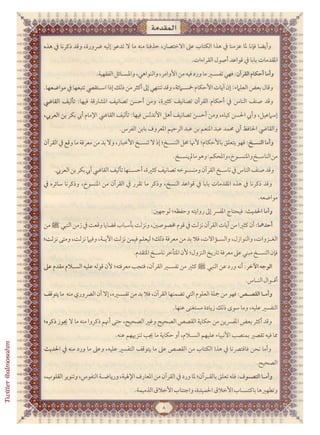 المقدمة
وأيضا فإنا لما عزمنا في هذا الكتاب على الاختصار، حذفنا منه ما لا تدعو إليه ضرورة، وقد ذكرنا في هذه
المقدمات بابا في قواعد أصول القراءات.
وأما أحكام القرآن: فهي تفسير ما ورد فيه من الأوامر، والنواهي، والمسائل الفقهية.
وقال بعض العلماء: إن آيات الأحكام خمسمائة، وقد تنتهي إلى أكثر من ذلك إذا استقصي تتبعها في مواضعها.
وقد صنف الناس في أحكام القرآن تصانيف كثيرة، ومن أحسن تصانيف المشارقة فيها: تأليف القاضي
إسماعيل، وأبي الحسن كباه، ومن أحسن تصانيف أهل الأندلس فيها: تأليف القاضي الإمام أبي بكر بن العربي،
والقاضي الحافظ أبي محمد عبد المنعم بن عبد الرحيم المعروف بابن الفرس.
وأما النسخ: فهو يتعلق بالأحكام؛ لأنها محل النسخ؛ إذ لا تنسخ الأخبار، ولا بد من معرفة ما وقع في القرآن
من الناسخ، والمنسوخ، والمحكم: وهو ما لم ينسخ.
وقد صنف الناس في ناسخ القرآن ومنسوخه تصانيف كثيرة، أحسنها تأليف القاضي أبي بكر بن العربي.
وقد ذكرنا في هذه المقدمات بابا في قواعد النسخ، وذكر ما تقرر في القرآن من المنسوخ، وذكرنا سائره في
مواضعه.
وأما الحديث: فيحتاج المفسر إلى روايته وحفظه؛ لوجهين:
أحدهما: أن كثيرا من آيات القرآن نزلت في قوم مخصوصين، ونزلت بأسباب قضايا وقعت في زمن النبي ﷺ من
الغزوات، والنوازل، والسؤالات، فلا بد من معرفة ذلك؛ ليعلم فيمن نزلت الآية، وفيما نزلت، ومتى نزلت؛
فإن النسخ مبني على معرفة تاريخ النزول؛ لأن المتأخر ناسخ للمتقدم.
الوجه الآخر: أنه ورد عن النبي ﷺ كثير من تفسير القرآن، فتجب معرفته؛ لأن قوله عليه السلام مقدم على
أقوال الناس.
وأما القصص: فهو من جملة العلوم التي تضمنها القرآن، فلا بد من تفسيره، إلا أن الضروري منه ما يتوقف
التفسير عليه، وما سوى ذلك زيادة مستغنى عنها.
وقد أكثر بعض المفسرين من حكاية القصص الصحيح وغير الصحيح، حتى أنهم ذكروا منه ما لا يجوز ذكره؛
مما فيه تقصير بمنصب الأنبياء عليهم السلام، أو حكاية ما يجب تنزيههم عنه.
وأما نحن فاقتصرنا في هذا الكتاب من القصص على ما يتوقف التفسير عليه، وعلى ما ورد منه في الحديث
الصحيح.
وأما التصوف: فله تعلق بالقرآن؛ لما ورد في القرآن من المعارف الإلهية، ورياضة النفوس، وتنوير القلوب،
وتطهيرها باكتساب الأخلاق الحميدة، واجتناب الأخلاق الذميمة.
٨